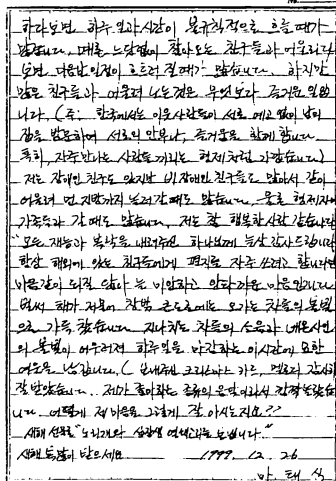 하다보면 하루 일과시간이 불규칙적으로 흐를 때가
많습니다. 때론 느닷없이 찾아오는 친구들과 어울리다
보면 다음날 일정이 흐트러 질때가 많습니다. 하지만
많은 친구들과 어울려 노는것은 무엇보다 즐거운 일입
니다. (주: 한주에서는 이웃사람들이 서로 예고 없이 남의
집을 방문하여 서로의 안부나, 즐거움을 함께 합니다.
특히, 자주만나는 사람들 끼리는 형제처럼 가깝습니다)
저는 장애인 친구도 있지만 비장애인 친구들도 많아서 같이
어울려 먼 지방까지 놀러갈때도 많습니다. 물론 형제자매
가족들과 갈 때도 많습니다. 저는 참 행복한 사람 같습니다
"모든 재능과 복낙을 내려주신 하나님께 늘 감사드립니다
항상 해외에 있는 친구들에게 편지로 자주 쓰려고 합니다만
마음같이 되질 않아 늘 미안하고 안타까운 마음입니다.
벌써 해가 저물어 창밖 도로에는 오가는 차들의 불빛
으로 가득 찼습니다. 지나치는 차들의 소음과 네온사인
의 불빛이 어우러져 하루일을 마감하는 이시간에 묘한
여운을 남깁니다. ( 보내주신 크리스마스 카드, 멜로디 감사히
잘 받았습니다. 제가 좋아하는 종류의 음악이라서 깜짝 놀랐습
니다. 어떻게 제 마음을 그렇게 잘 아시는지요??
새해 선물로 "노리개와 십장생 연하장"을 보냅니다."
새해 복많이 받으세요. 1999. 12. 26
마 태 식